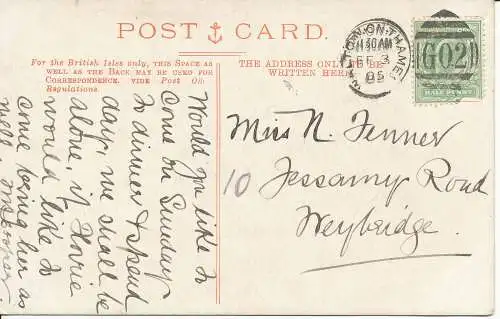 POST CARD.
For the British Isles only, this SPACE AS
WELL AS THE BACK MAY BE USED FOR
CORRESPONDENCE. VIDE Post Off:
Regulations.
THE ADDRESS ONLY
WRITTEN HERE
WALTON-ON-THAMES
11 30AM
FE 3
05
G02
HALF PENNY
Miss N. Fenner
10 Jessamy Road
Weybridge.
Would you like to
come on Sunday
to dinner & spend
day, we shall be
alone, if Florrie
would like to
come bring her as
well. Cooper